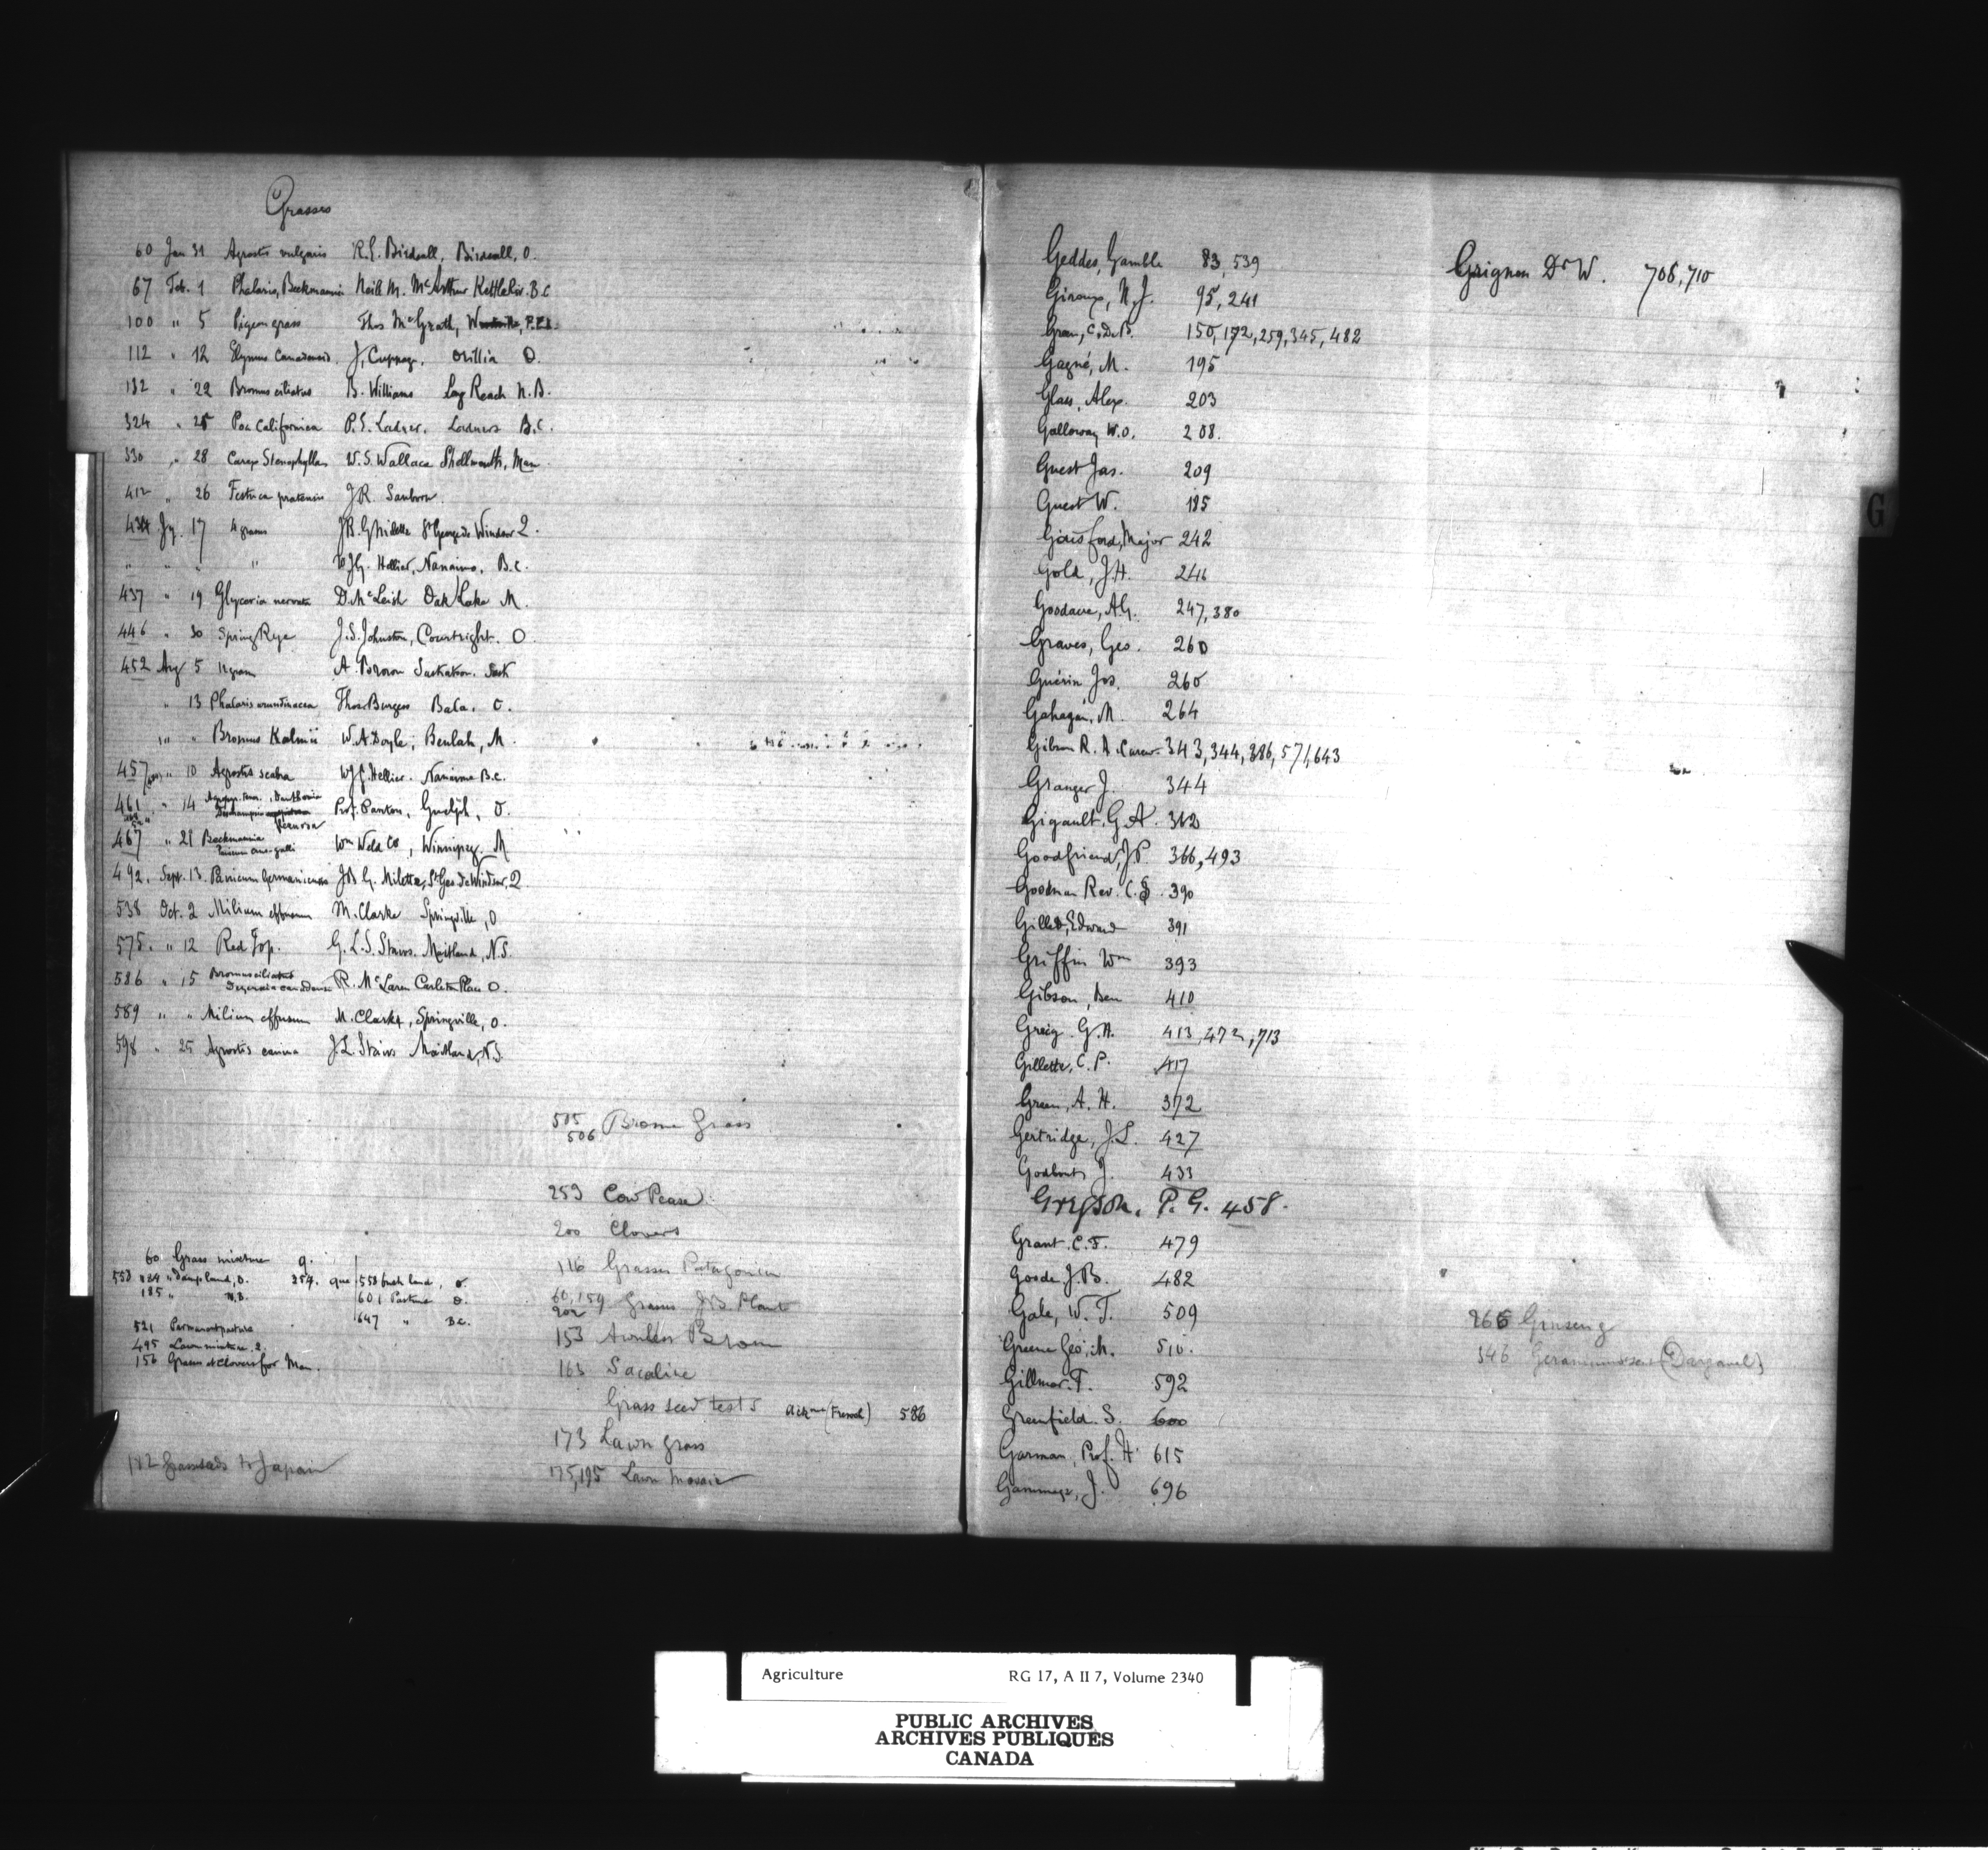 Grasses
60 Jan 31 Agrostis vulgaris R.E. Birdsall, Birdsall, O.
67 Feb. 1 Phalaris, Beckmannia Neil M. McArthur Kettle Riv. B.C
100 " 5 Pigeon grass Thos McGrath,
112 " 12 Elymus Canadensis. J. Cuppage. Orillia O.
132 " 22 Bromus ciliatus B. Williams Long Reach N.B.
324 " 25 Poa Californica P.E. Ladner. Ladners B.C.
330 " 28 Carex Stenophylla W.S. Wallace Shellmouth, Man
412 " 26 Festuca pratensis J.R. Sanborn.
434 Jy. 17 4 grasses J.B.G. Milette St George de Windsor Q.
" " " " W.J.G. Hellier, Nanaimo, B.C.
437 " 19 Glyceria nervata D. McLeish Oak Lake M.
446 " 30 Spring Rye J.S. Johnston, Courtright. O.
452 Aug 5 11 grasses A Brown Saskatoon. Sask
" 13 Phalaris arundinacea Thos. Burgess Bala. O.
" " Bromus Kalmii W.A Doyle, Beulah, M.
457 " 10 Agrostis scabra W.J.G. Hellier. Nanaimo B.C.
461 " 14 Danthonia Prof. Panton, Guelph, O.
467 " 21 Beckmannia Panicum crus-galli Wm Weld Co, Winnipeg. M
492. Sept. 13. Panicum Germanicum J.B G. Milette, St Geo. de Windsor, Q
538 Oct. 2 Milium effusum M. Clarke Springville, O
575. " 12 Red Top. G. L. S. Stairs. Maitland, N.S.
586 " 15 Bromus ciliatus Deyeuxia canadensis R. McLaren Carleton Place O.
589 " " Milium effusum M. Clarke, Springville, O.
598 " 25 Agrostis canina J.L. Stairs Maitland, N.S.
505
506 Brome Grass
259 Cow Pease
200 Clovers
116 Grasses Patagonia
60, 159 Grasses J.B. Plant
202
153 Awnless Brom
163 Sacaline
Grass seed tests (French) 586
173 Lawn grass
175, 195 Lawn Mosaic
60 Grass mixture q.
553 " Damp land, O. 254. que 553 bush land, O.
185 " N.B. 601 Pasture O.
647 " B.C.
521 Permanent pasture
495 Lawn mixture. Q.
156 Grasses & Clovers for Man.
112 Grass seeds to Japan
Geddes, Gamble 83, 539
Giroux, N.J. 95, 241
150, 172, 259, 345, 482
Gagné, M. 195
Glass, Alex. 203
Galloway W.O. 208.
Guest Jas. 209
Guest W. 185
Gaisford, Major 242
Gold, J.H. 246
247, 380
Graves, Geo. 260
Guérin Jos. 260
Gahagan, M. 264
Gibson R. A. Carew 343, 344, 386, 571, 643
Granger J. 344
Gigault, G.A. 312
Goodfriend, J.P. 366, 493
Goodman Rev. C. 390
Gillett, Edward 391
Griffin Wm 393
Gibson, Ben 410
Greig. G.H. 413, 472, 713
Gillette, C.P. 417
Green, A.H. 372
Gertridge, J.L. 427
Godbout J. 433
Gregson. P. G. 458.
Grant. C.F. 479
Goode J.B. 482
Gale, W. T. 509
Greene Geo. M. 510.
Gillmor. T. 592
Greenfield. S. 600
Garman, Prof. H 615
Gammage, J. 696
Grignon Dr W. 708, 710
G
266 Ginseng
346
Agriculture RG 17, A II 7, Volume 2340
PUBLIC ARCHIVES
ARCHIVES PUBLIQUES
CANADA